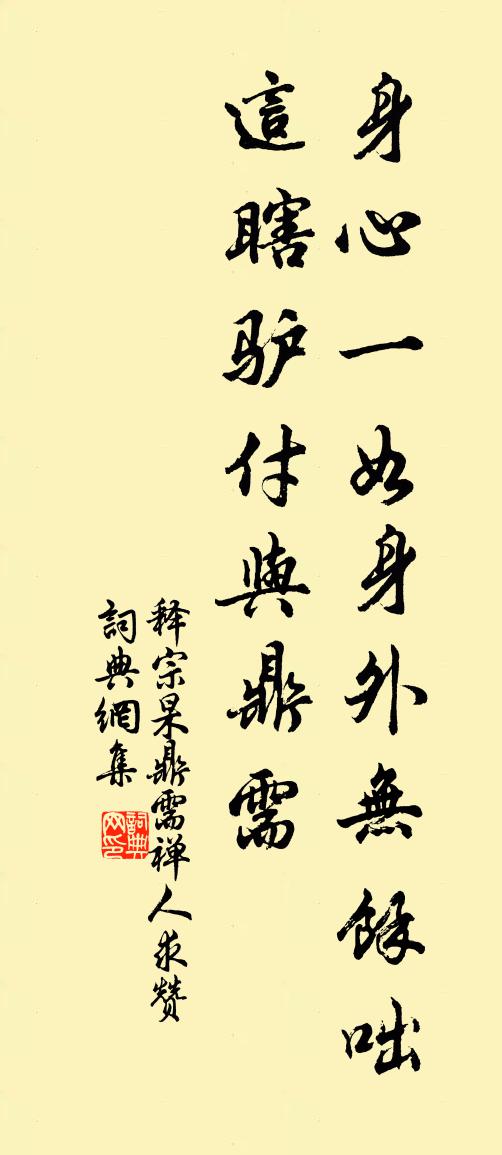 身心一如身外無餘咄
這瞎驴付與鼎需
释宗杲鼎需禅人求赞
詞典網集
詞典網印